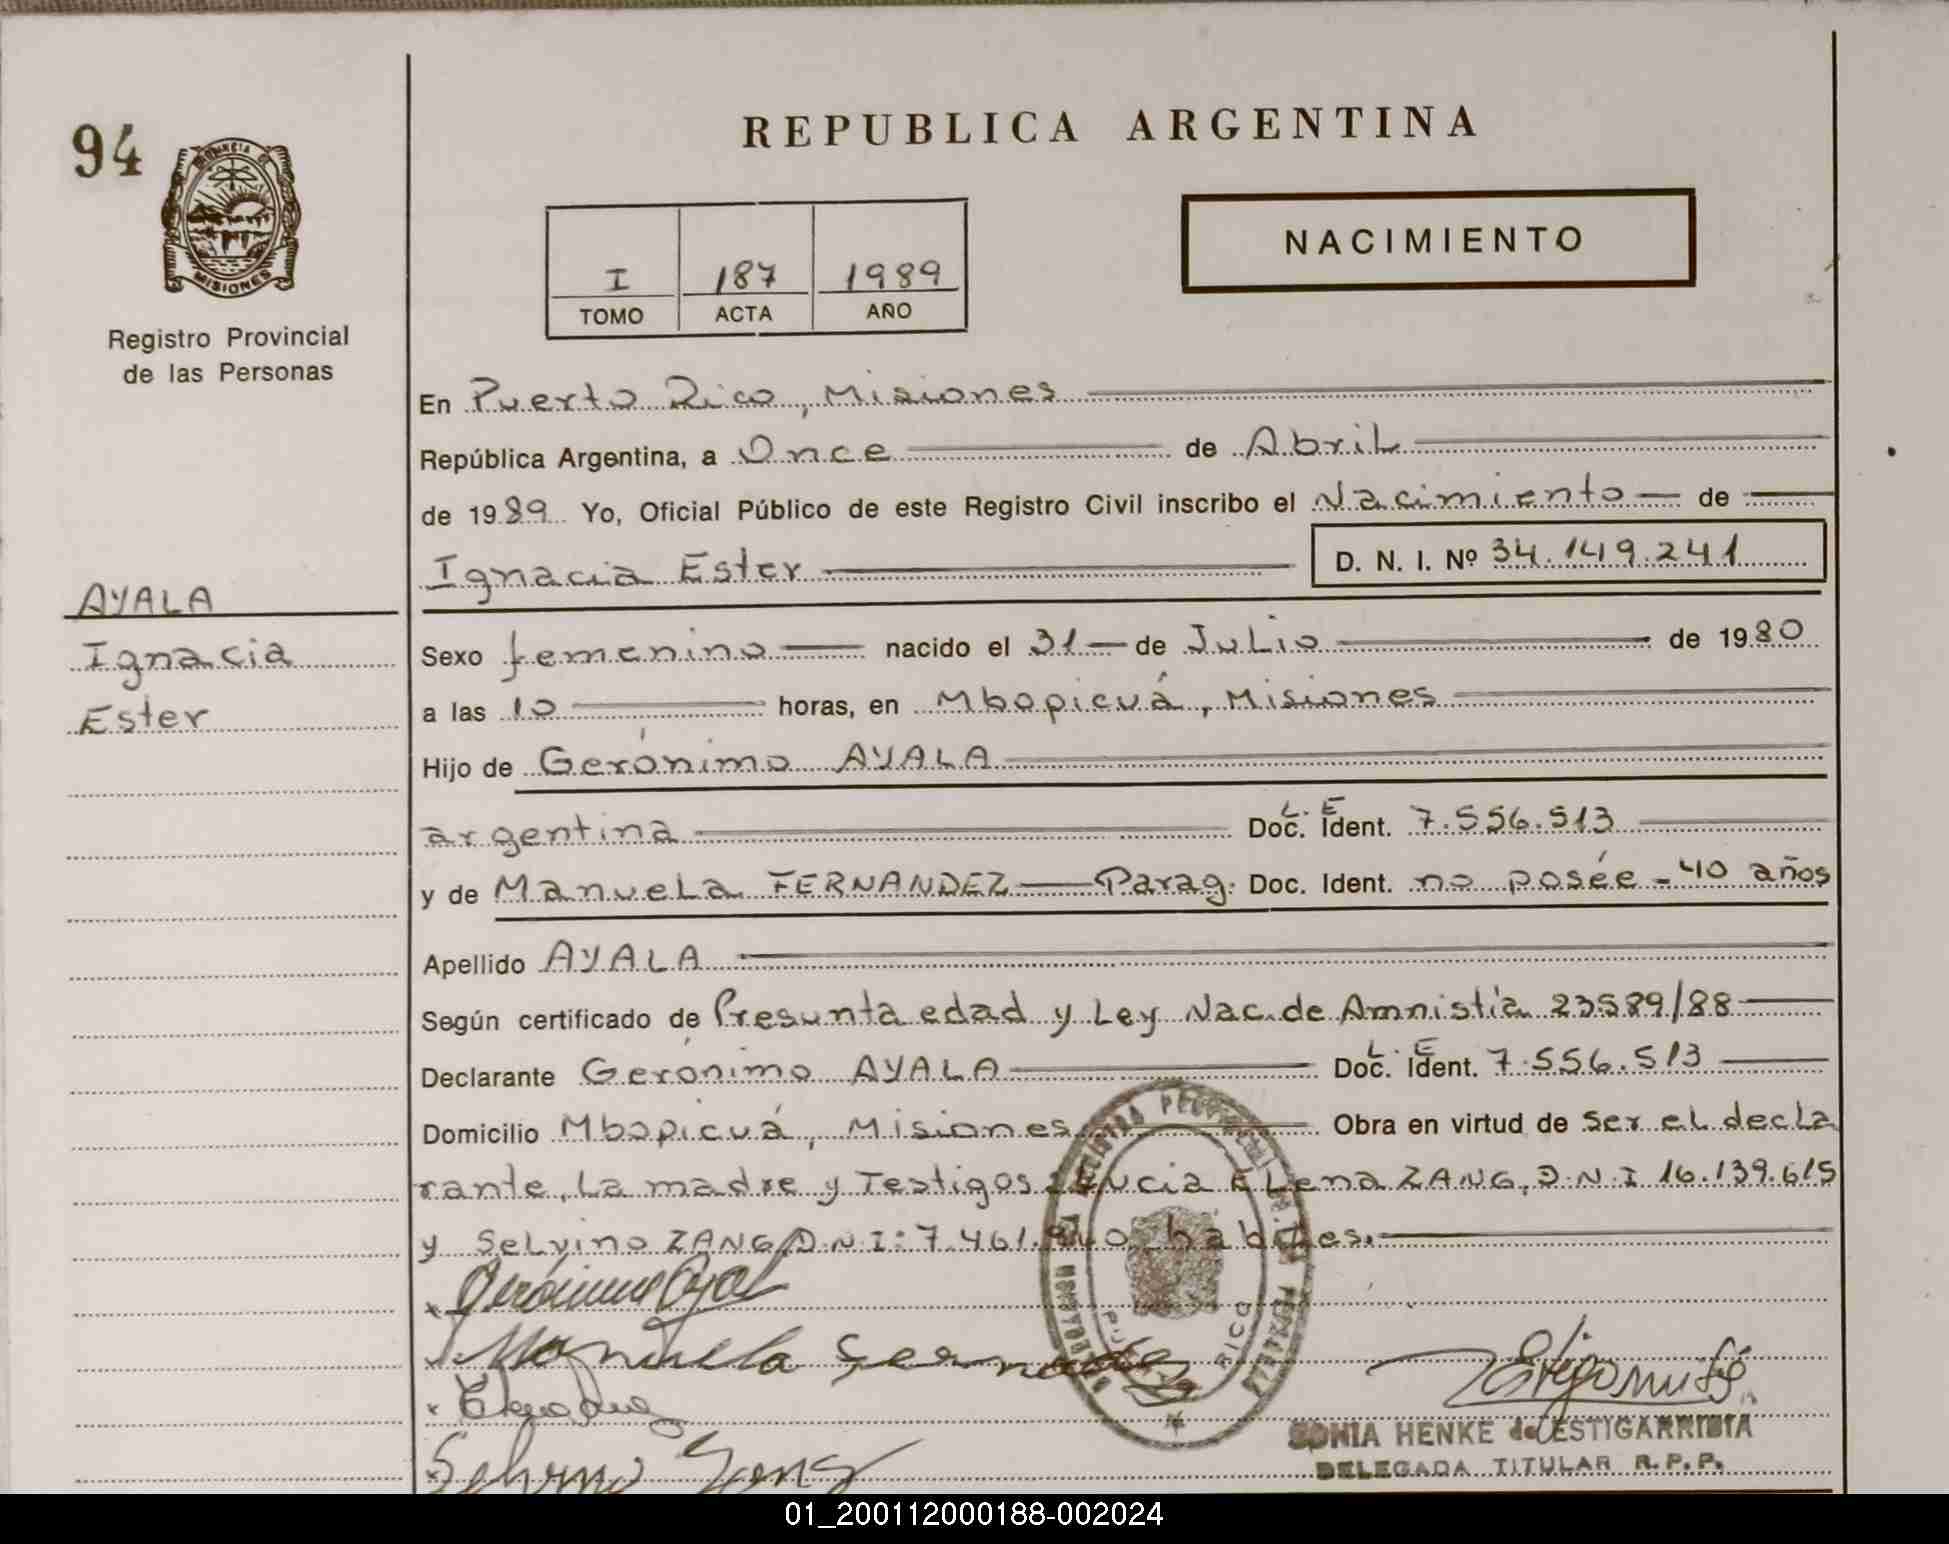 94
PROVINCIA DE
MISIONES
Registro Provincial
de las Personas
REPUBLICA ARGENTINA
NACIMIENTO
I 187 1989
TOMO ACTA AÑO
En Puerto Rico, Misiones
República Argentina, a Once de Abril
de 1989 Yo, Oficial Público de este Registro Civil inscribo el Nacimiento de
Ignacia Ester D. N. I. Nº 34.149.241
AYALA
Ignacia
Ester
Sexo femenino nacido el 31 de Julio de 1980
a las 10 horas, en Mbopicuá, Misiones
Hijo de Gerónimo AYALA
argentina Doc. Ident. L. E 7.556.513
y de Manuela FERNANDEZ Parag. Doc. Ident. no posée - 40 años
Apellido AYALA
Según certificado de Presunta edad y Ley Nac. de Amnistía 23589/88
Declarante Gerónimo AYALA Doc. Ident. L. E 7.556.513
Domicilio Mbopicuá, Misiones Obra en virtud de ser el decla
rante, la madre y Testigos: Lucia Elena ZANG, D.N.I 16.139.615
y Selvino ZANG D.N.I: 7.461. habiles.
Gerónimo Ayal
Manuela Fernandez
Selvino Zang
PUERTO RICO
SONIA HENKE de ESTIGARRIBIA
DELEGADA TITULAR R.P.P.
01_200112000188-002024